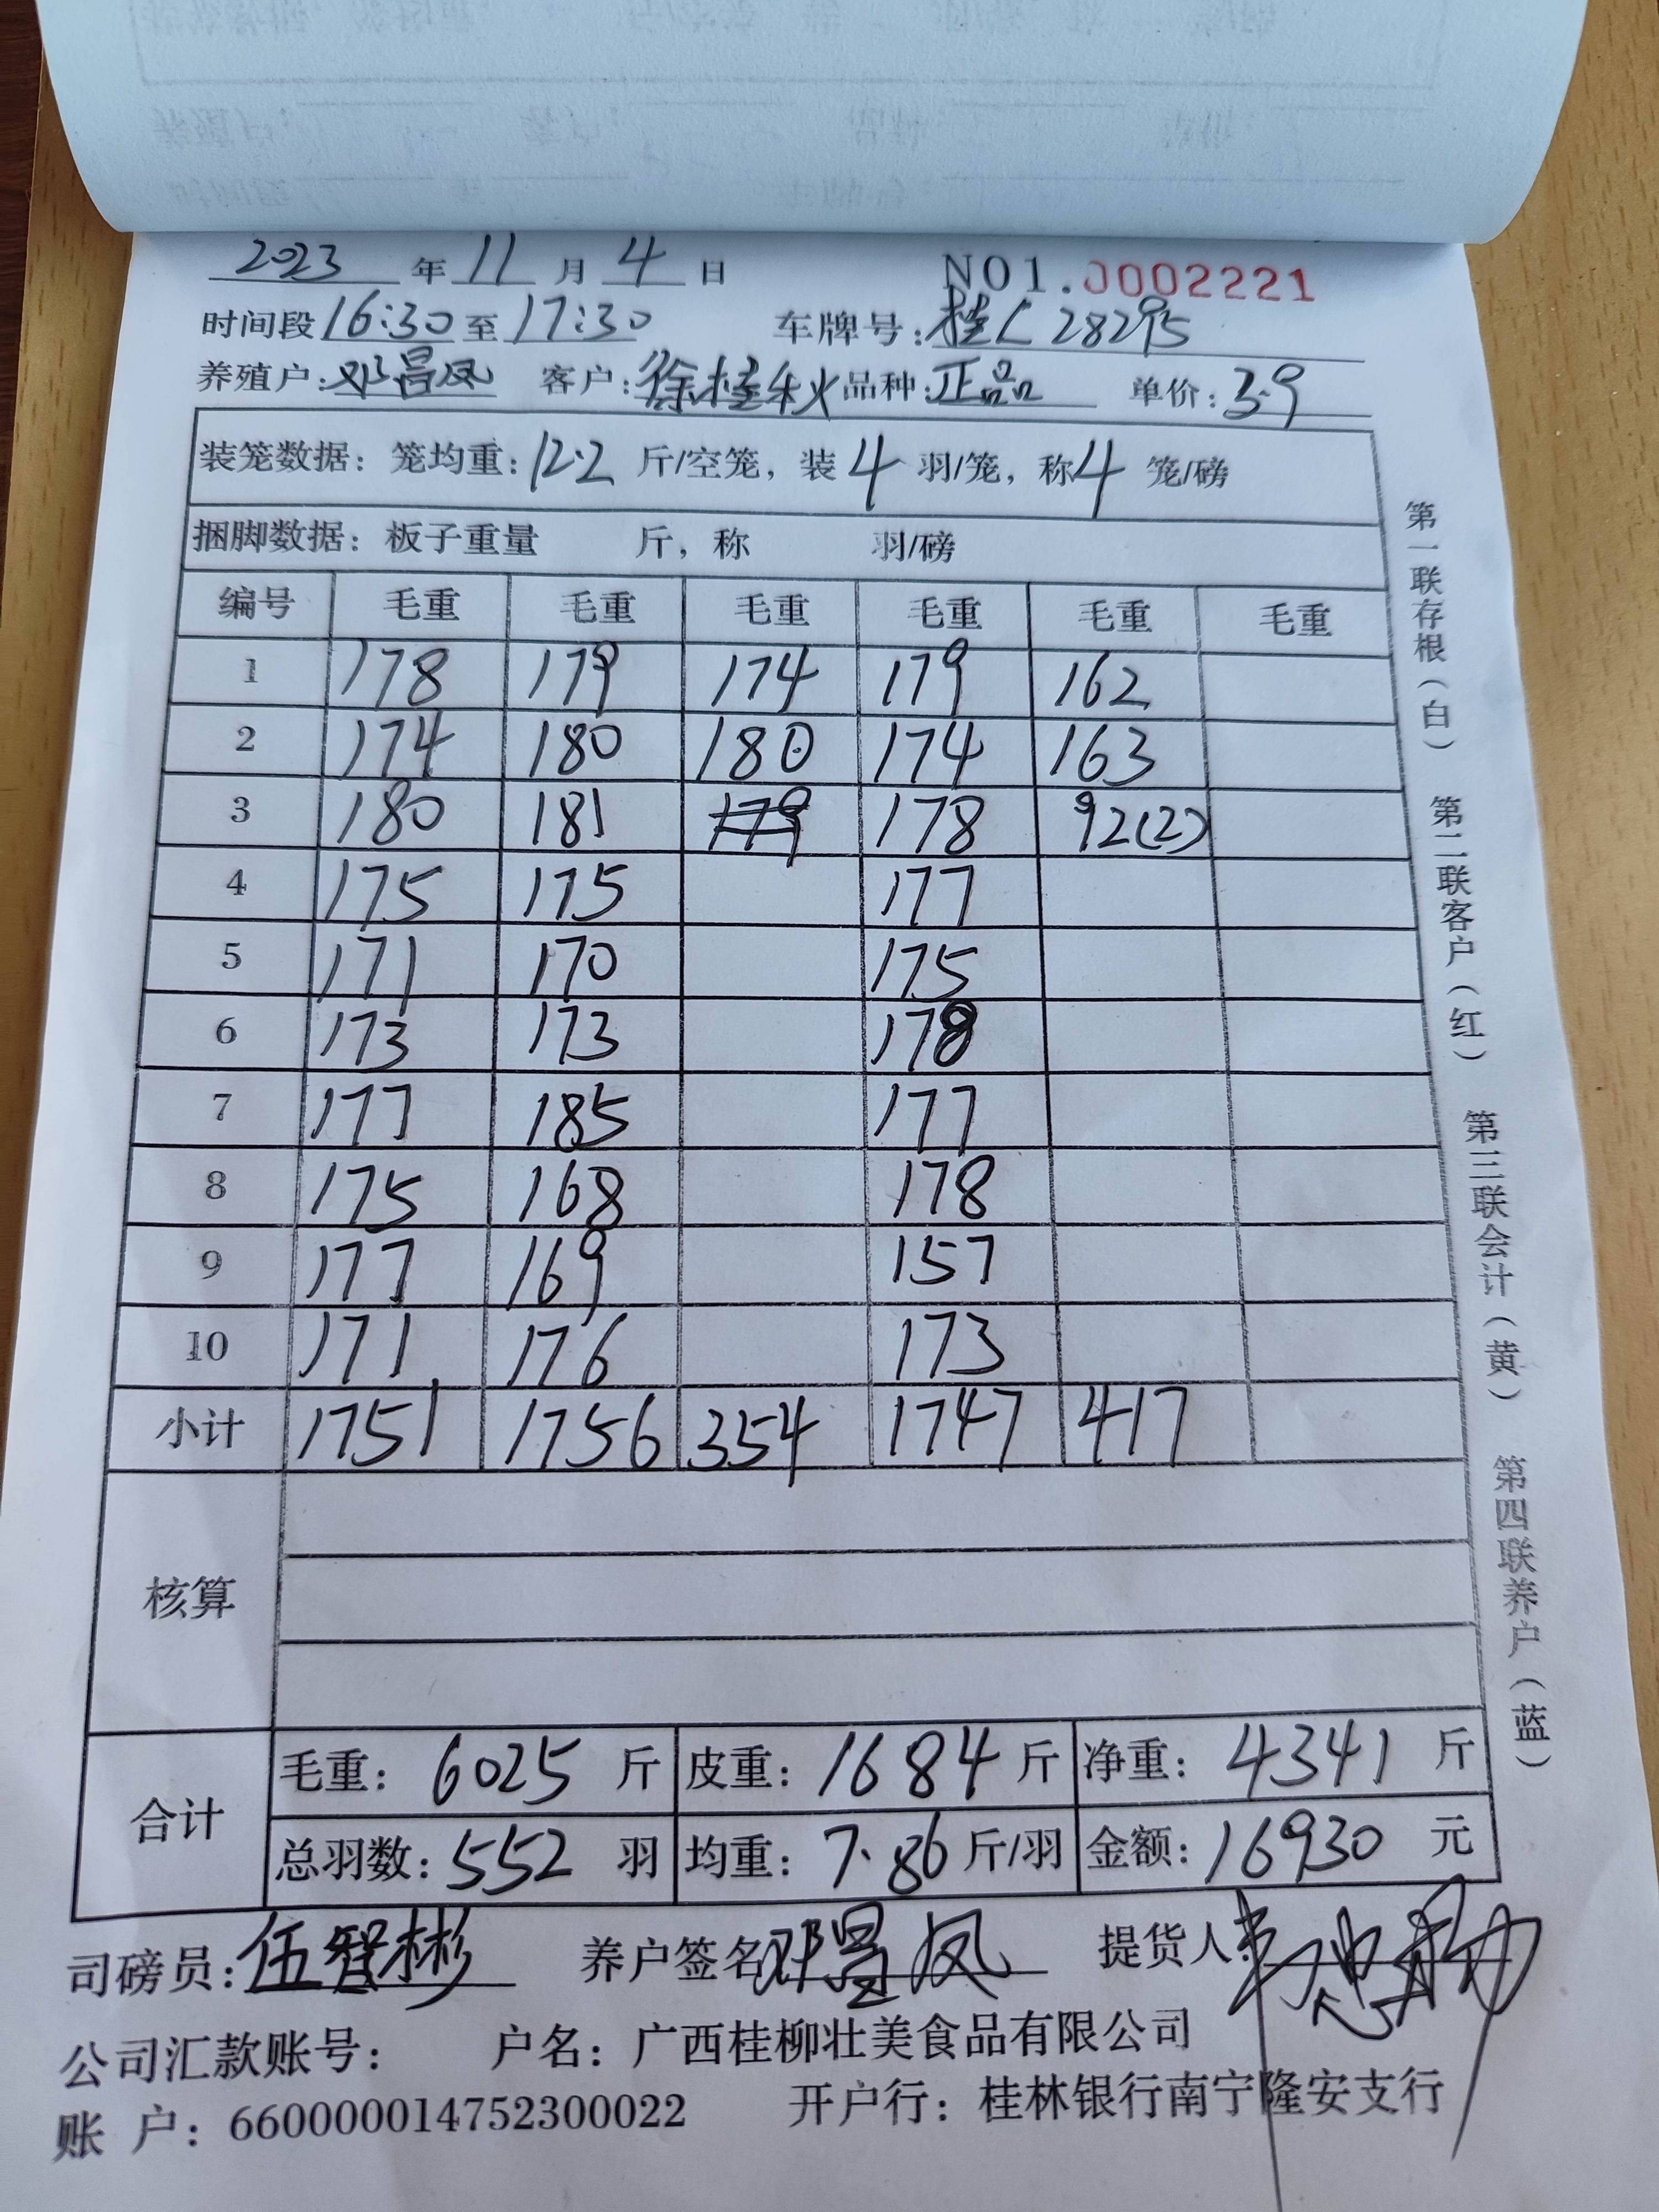 2023 年 11 月 4 日 NO1.0002221
时间段 16:30 至 17:30 车牌号: 桂L 28295
养殖户: 邓昌凤 客户: 徐桂秋 品种: 正品 单价: 3.9
装笼数据: 笼均重: 12.2 斤/空笼, 装 4 羽/笼, 称 4 笼/磅
捆脚数据: 板子重量 斤, 称 羽/磅
编号 毛重 毛重 毛重 毛重 毛重 毛重
1 178 179 174 179 162
2 174 180 180 174 163
3 180 181 179 178 92(2)
4 175 175 177
5 171 170 175
6 173 173 178
7 177 185 177
8 175 168 178
9 177 169 157
10 171 176 173
小计 1751 1756 354 1747 417
核算
合计 毛重: 6025 斤 皮重: 1684 斤 净重: 4341 斤
总羽数: 552 羽 均重: 7.86 斤/羽 金额: 16930 元
司磅员: 伍智彬 养户签名 邓昌凤 提货人:
公司汇款账号: 户名: 广西桂柳壮美食品有限公司
账 户: 660000014752300022 开户行: 桂林银行南宁隆安支行
第一联存根(白) 第二联客户(红) 第三联会计(黄) 第四联养户(蓝)